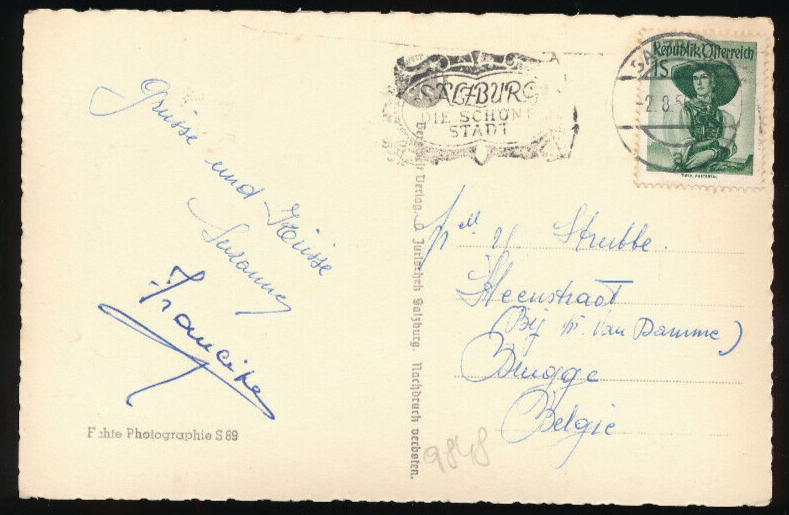 Grüsse und Küsse
Susanne
SALZBURG
DIE SCHÖNE
STADT
Republik Österreich
1S
2.8.5
TIROL, PUSTERTAL
Verlag Jurischek Salzburg. Nachdruck verboten.
Y. Strubbe.
Steenstraat
(Bij Van Damme)
Brugge
Belgie
Echte Photographie S 89
9848